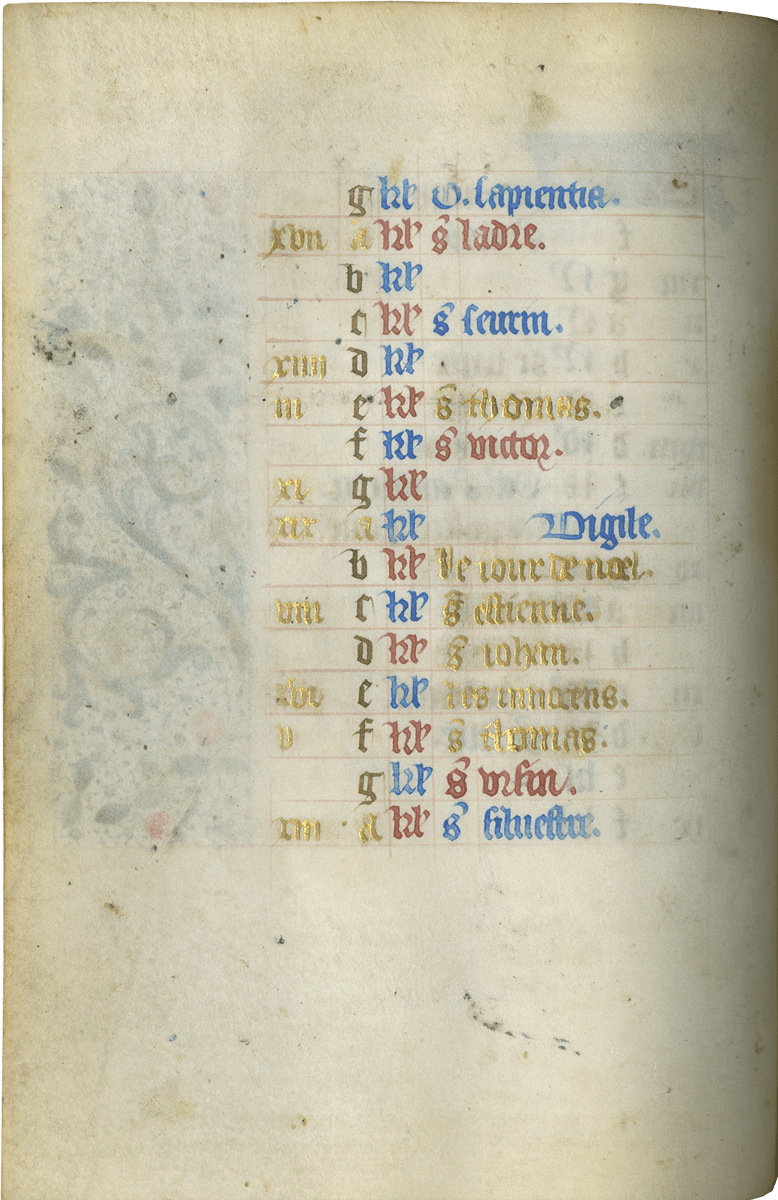 g kl O. sapientia.
xvii a kl s ladre.
b kl
c kl s seurin.
xiiii d kl
iii e kl s thomas.
f kl s victor.
xi g kl
xix a kl Vigile.
b kl Le iour de noel.
viii c kl s estienne.
d kl s iohan.
xvi e kl Les innocens.
v f kl s thomas.
g kl s vrsin.
xiii a kl s siluestre.